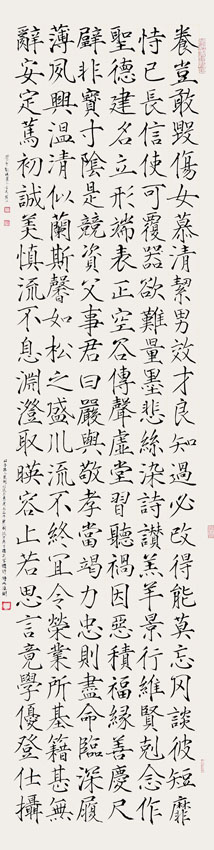 養豈敢毀傷女慕清絜男效才良知過必改得能莫忘罔談彼短靡
恃己長信使可覆器欲難量墨悲絲染詩讚羔羊景行維賢剋念作
聖德建名立形端表正空谷傳聲虛堂習聽禍因惡積福緣善慶尺
璧非寶寸陰是競資父事君曰嚴與敬孝當竭力忠則盡命臨深履
薄夙興溫清似蘭斯馨如松之盛川流不終冝令榮業所基籍甚無
辭安定篤初誠美慎流不息淵澄取暎容止若思言竟學優登仕攝